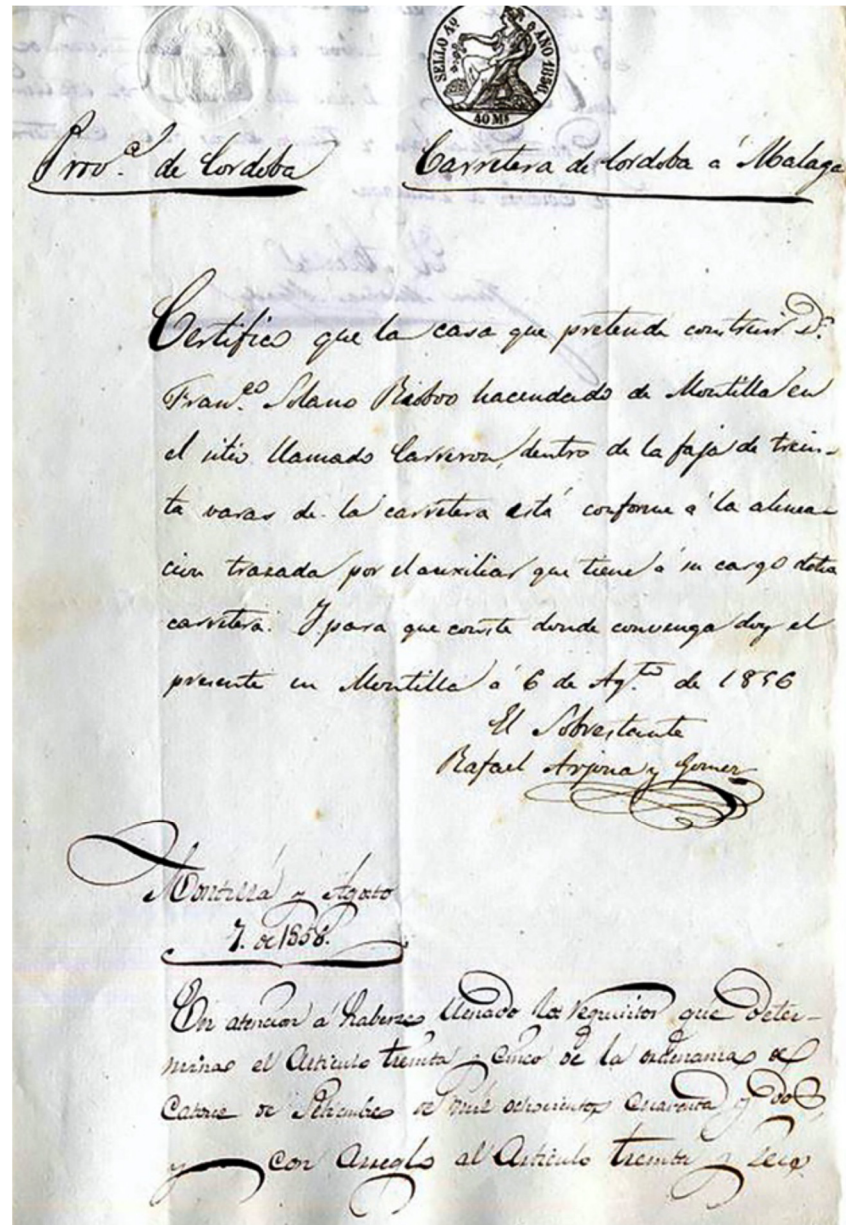 SELLO 4º AÑO 1856.
40 Mˢ
Provª de Cordoba
Carretera de Cordoba á Malaga
Certifico que la casa que pretende construir Dⁿ
Franᶜᵒ Solano Riobóo hacendado de Montilla en
el sitio llamado Carreron, dentro de la faja de trein-
ta varas de la carretera está conforme á la alinea-
cion trazada por el auxiliar que tiene á su cargo dicha
carretera. Y para que conste donde convenga doy el
presente en Montilla á 6 de Agᵗᵒ de 1856
El Sobrestante
Rafael Arjona y Gomez
Montilla y Agosto
7. de 1856.
En atencion á haberse llenado los requisitos que deter-
minas el Articulo treinta y cinco de la ordenanza de
Catorce de Setiembre de mil ochocientos cuarenta y dos,
y con arreglo al Articulo treinta y seis